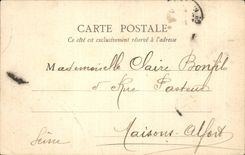 CARTE POSTALE
Ce côté est exclusivement réservé à l'adresse
Mademoiselle Claire Bonfils
Rue Pasteur
Maisons-Alfort
Seine